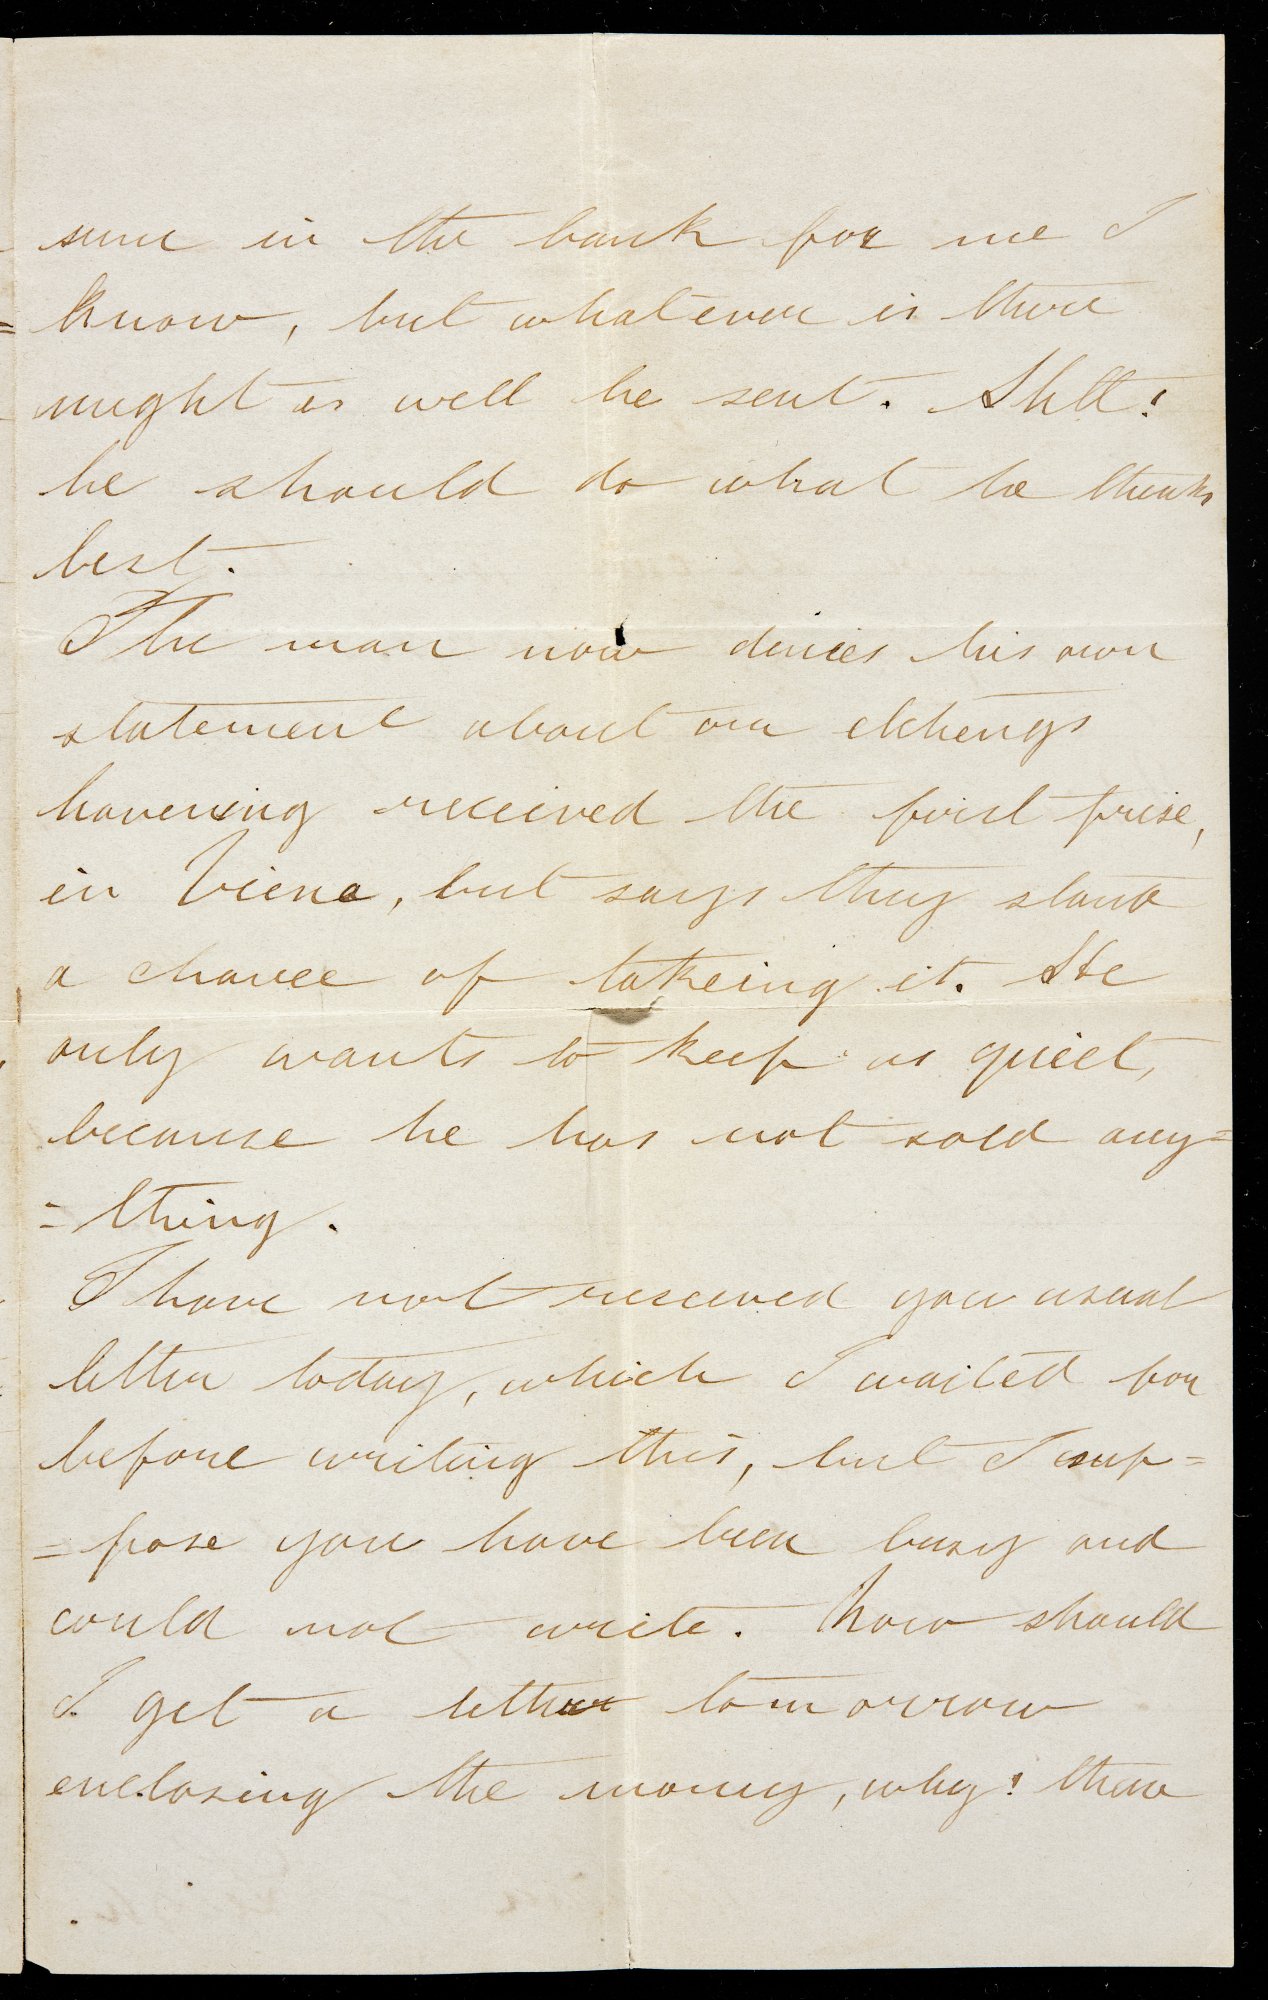 sum in the bank for me I
know, but whatever is there
might as well be sent. Still!
he should do what he thinks
best.
The man now denies his own
statement about our etchings
haveing received the first prise,
in Viena, but says they stand
a chance of takeing it. He
only wants to keep us quiet,
because he has not sold any=
=thing.
I have not received you usual
letter today, which I waited for
before writing this, but I sup=
=pose you have been busy and
could not write. Now should
I get a letter tomorrow
enclosing the money, why! then